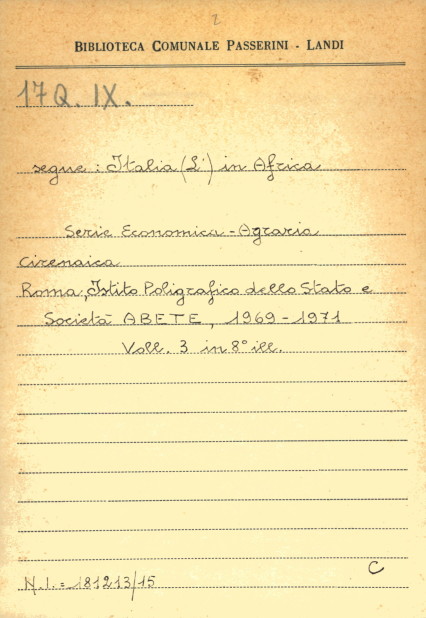 2
BIBLIOTECA COMUNALE PASSERINI - LANDI
17 Q. IX.
segue: Italia (L') in Africa
Serie Economica - Agraria
Cirenaica
Roma, Istito Poligrafico dello Stato e
Società ABETE, 1969 - 1971
Voll. 3 in 8° ill.
C
N.I. = 181213/15